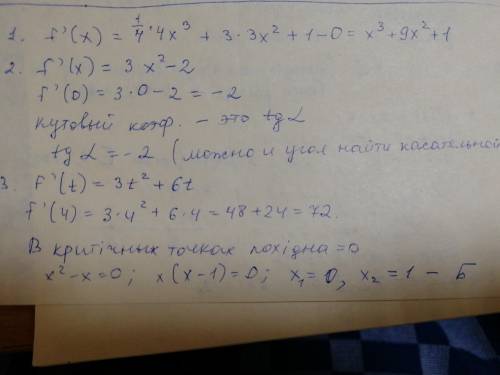 1. f'(x) = 1/4 · 4x³ + 3·3x² + 1 – 0 = x³ + 9x² + 1
2. f'(x) = 3x² – 2
f'(0) = 3·0 – 2 = –2
кутовый коэф. – это tg α
tg α = –2 (можно и угол найти касательной
3. f'(t) = 3t² + 6t
f'(4) = 3·4² + 6·4 = 48 + 24 = 72.
В критічных точках похідна = 0
x² – x = 0; x(x–1) = 0; x₁ = 0, x₂ = 1 – Б